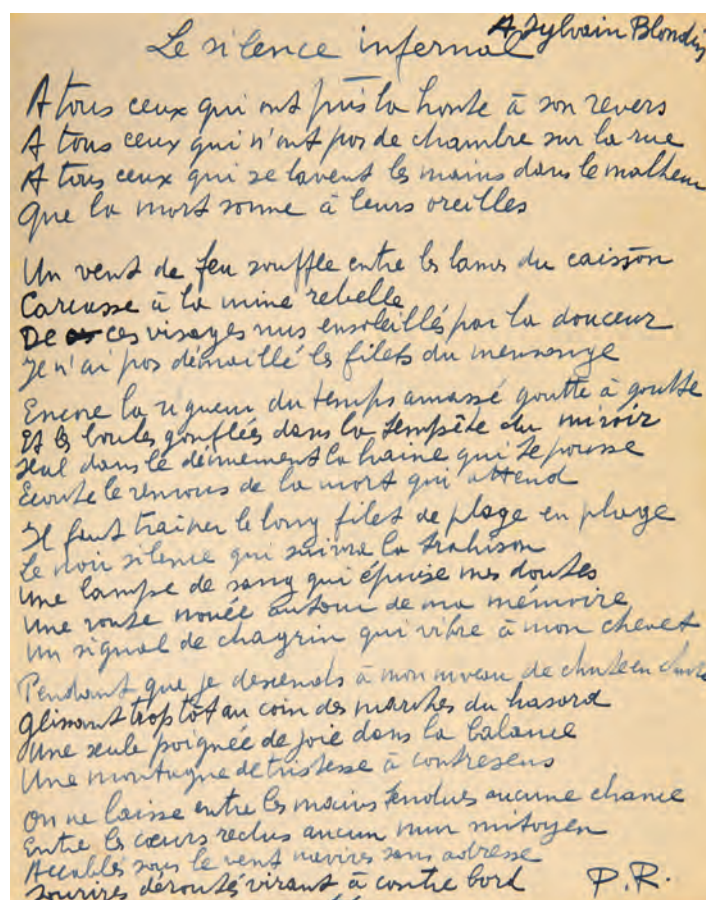 A Sylvain Blondin
Le silence infernal
A tous ceux qui ont pris la honte à son revers
A tous ceux qui n'ont pas de chambre sur la rue
A tous ceux qui se lavent les mains dans le malheur
Que la mort sonne à leurs oreilles
Un vent de feu souffle entre les lames du caisson
Carcasse à la mine rebelle
De ces visages nus ensoleillés par la douceur
Je n'ai pas démaillé les filets du mensonge
Encore la rigueur du temps amassé goutte à goutte
Et les boules gonflées dans la tempête du miroir
Seul dans le dénuement la haine qui te pousse
Ecoute le remous de la mort qui attend
Il faut trainer le long filet de plage en plage
Le noir silence qui suivra la trahison
Une lampe de sang qui épuise mes doutes
Une route nouée autour de ma mémoire
Un signal de chagrin qui vibre à mon chevet
Pendant que je descends à mon niveau de chute en chute
Glissant trop tôt au coin des marches du hasard
Une seule poignée de joie dans la balance
Une montagne de tristesse à contresens
On ne laisse entre les mains tendues aucune chance
Entre les cœurs reclus aucun mur mitoyen
Accablés sous le vent navires sans adresse
Sourires déroutés virant à contre bord
P.R.